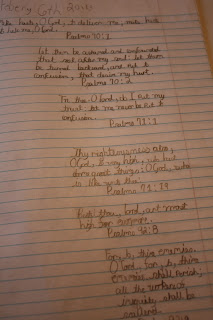 Make haste, O God, to deliver me, make haste
to help me, O Lord.
Psalms 70:1
Let them be ashamed and confounded
that seek after my soul: let them
be turned backward, and put to
confusion, that desire my hurt.
Psalms 70:2
In thee O Lord, do I put my
trust: let me never be put to
confusion.
Psalms 71:1
Thy righteousness also,
O God, is very high, who hast
done great things: O God, who
is like
Psalms 71:19
But thou, Lord, art most
high for evermore.
Psalms 92:8
For, lo, thine enemies,
O Lord, for, lo, thine
enemies shall perish;
all the workers of
iniquity shall be